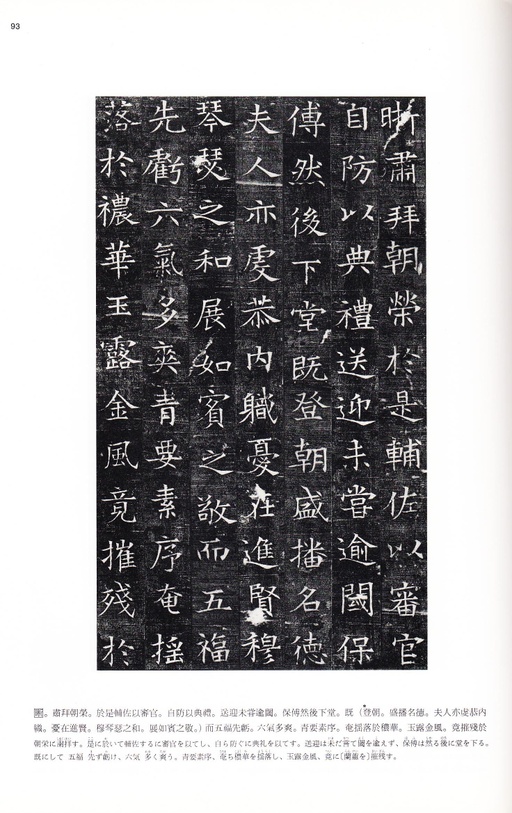 93
晣肅拜朝榮於是輔佐以審官
自防以典禮送迎未嘗逾閾保
傅然後下堂既登朝盛播名德
夫人亦虔恭內職憂在進賢穆
琴瑟之和展如賓之敬而五福
先虧六氣多爽青要素序奄搖
落於穠華玉露金風竟摧殘於
肅拜朝榮。於是輔佐以審官。自防以典禮。送迎未嘗逾閾。保傅然後下堂。既（登朝。盛播名德。夫人亦虔恭内
職。憂在進賢。穆琴瑟之和。展如賓之敬。）而五福先虧。六氣多爽。青要素序。奄搖落於穠華。玉露金風。竟摧殘於
朝栄に粛拝す。是に於いて輔佐するに審官を以てし、自ら防ぐに典礼を以てす。送迎は未だ嘗て閾を逾えず、保傅は然る後に堂を下る。
既にして 五福 先ず虧け、六気 多く爽う。青要素序、奄ち穠華を揺落し、玉露金風、竟に〔蘭蕙を〕摧残す。